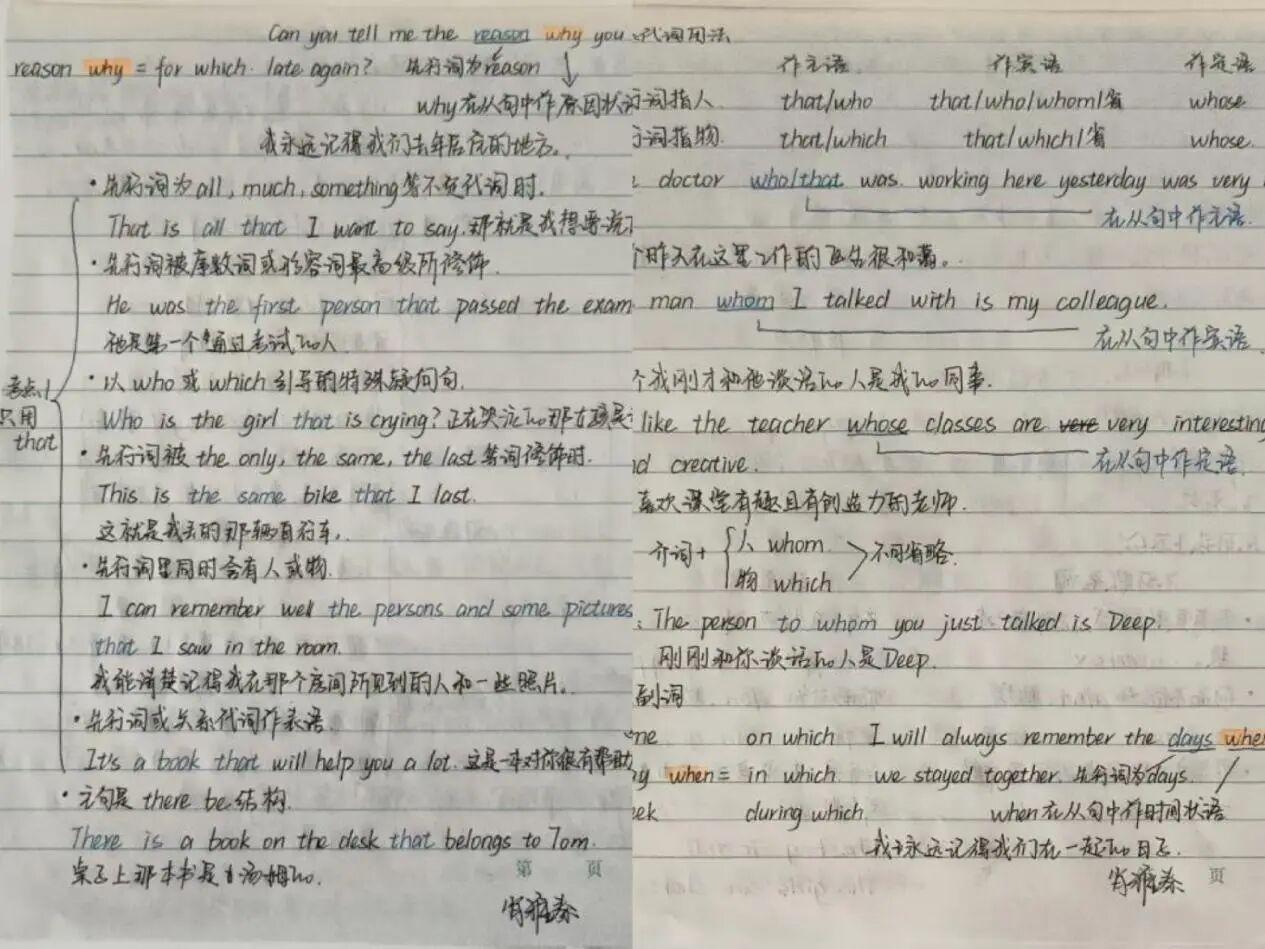 Can you tell me the reason why you
reason why = for which. late again? 先行词为reason
why在从句中作原因状语
我永远记得我们去年居住的地方。
·先行词为all, much, something等不定代词时.
That is all that I want to say. 那就是我想要说
·先行词被序数词或形容词最高级所修饰.
He was the first person that passed the exam
他是第一个通过考试的人.
·以who或which引导的特殊疑问句.
Who is the girl that is crying? 正在哭泣的那女孩是
考点1
只用
that
·先行词被the only, the same, the last等词修饰时.
This is the same bike that I last.
这就是我丢的那辆自行车.
·先行词里同时含有人或物.
I can remember well the persons and some pictures
that I saw in the room.
我能清楚记得我在那个房间所见到的人和一些照片。
·先行词或关系代词作表语.
It's a book that will help you a lot. 这是一本对你很有帮助
·主句是there be结构.
There is a book on the desk that belongs to Tom.
桌子上那本书是汤姆的.
第 页
肖雅秦
代词用法
作主语. 作宾语 作定语
行词指人 that/who that/who/whom/省 whose
行词指物. that/which that/which/省 whose.
doctor who/that was working here yesterday was very
在从句中作主语.
个昨天在这里工作的医生很和蔼。
man whom I talked with is my colleague.
在从句中作宾语.
个我刚才和他谈话的人是我的同事.
like the teacher whose classes are were very interesting
nd creative.
在从句中作定语.
喜欢课堂有趣且有创造力的老师.
介词+ 人 whom
物 which
不可省略.
: The person to whom you just talked is Deep.
刚刚和你谈话的人是Deep.
副词
me on which I will always remember the days when
y when = in which we stayed together. 先行词为days.
ek during which. when在从句中作时间状语
我永远记得我们在一起的日子.
肖雅秦 页